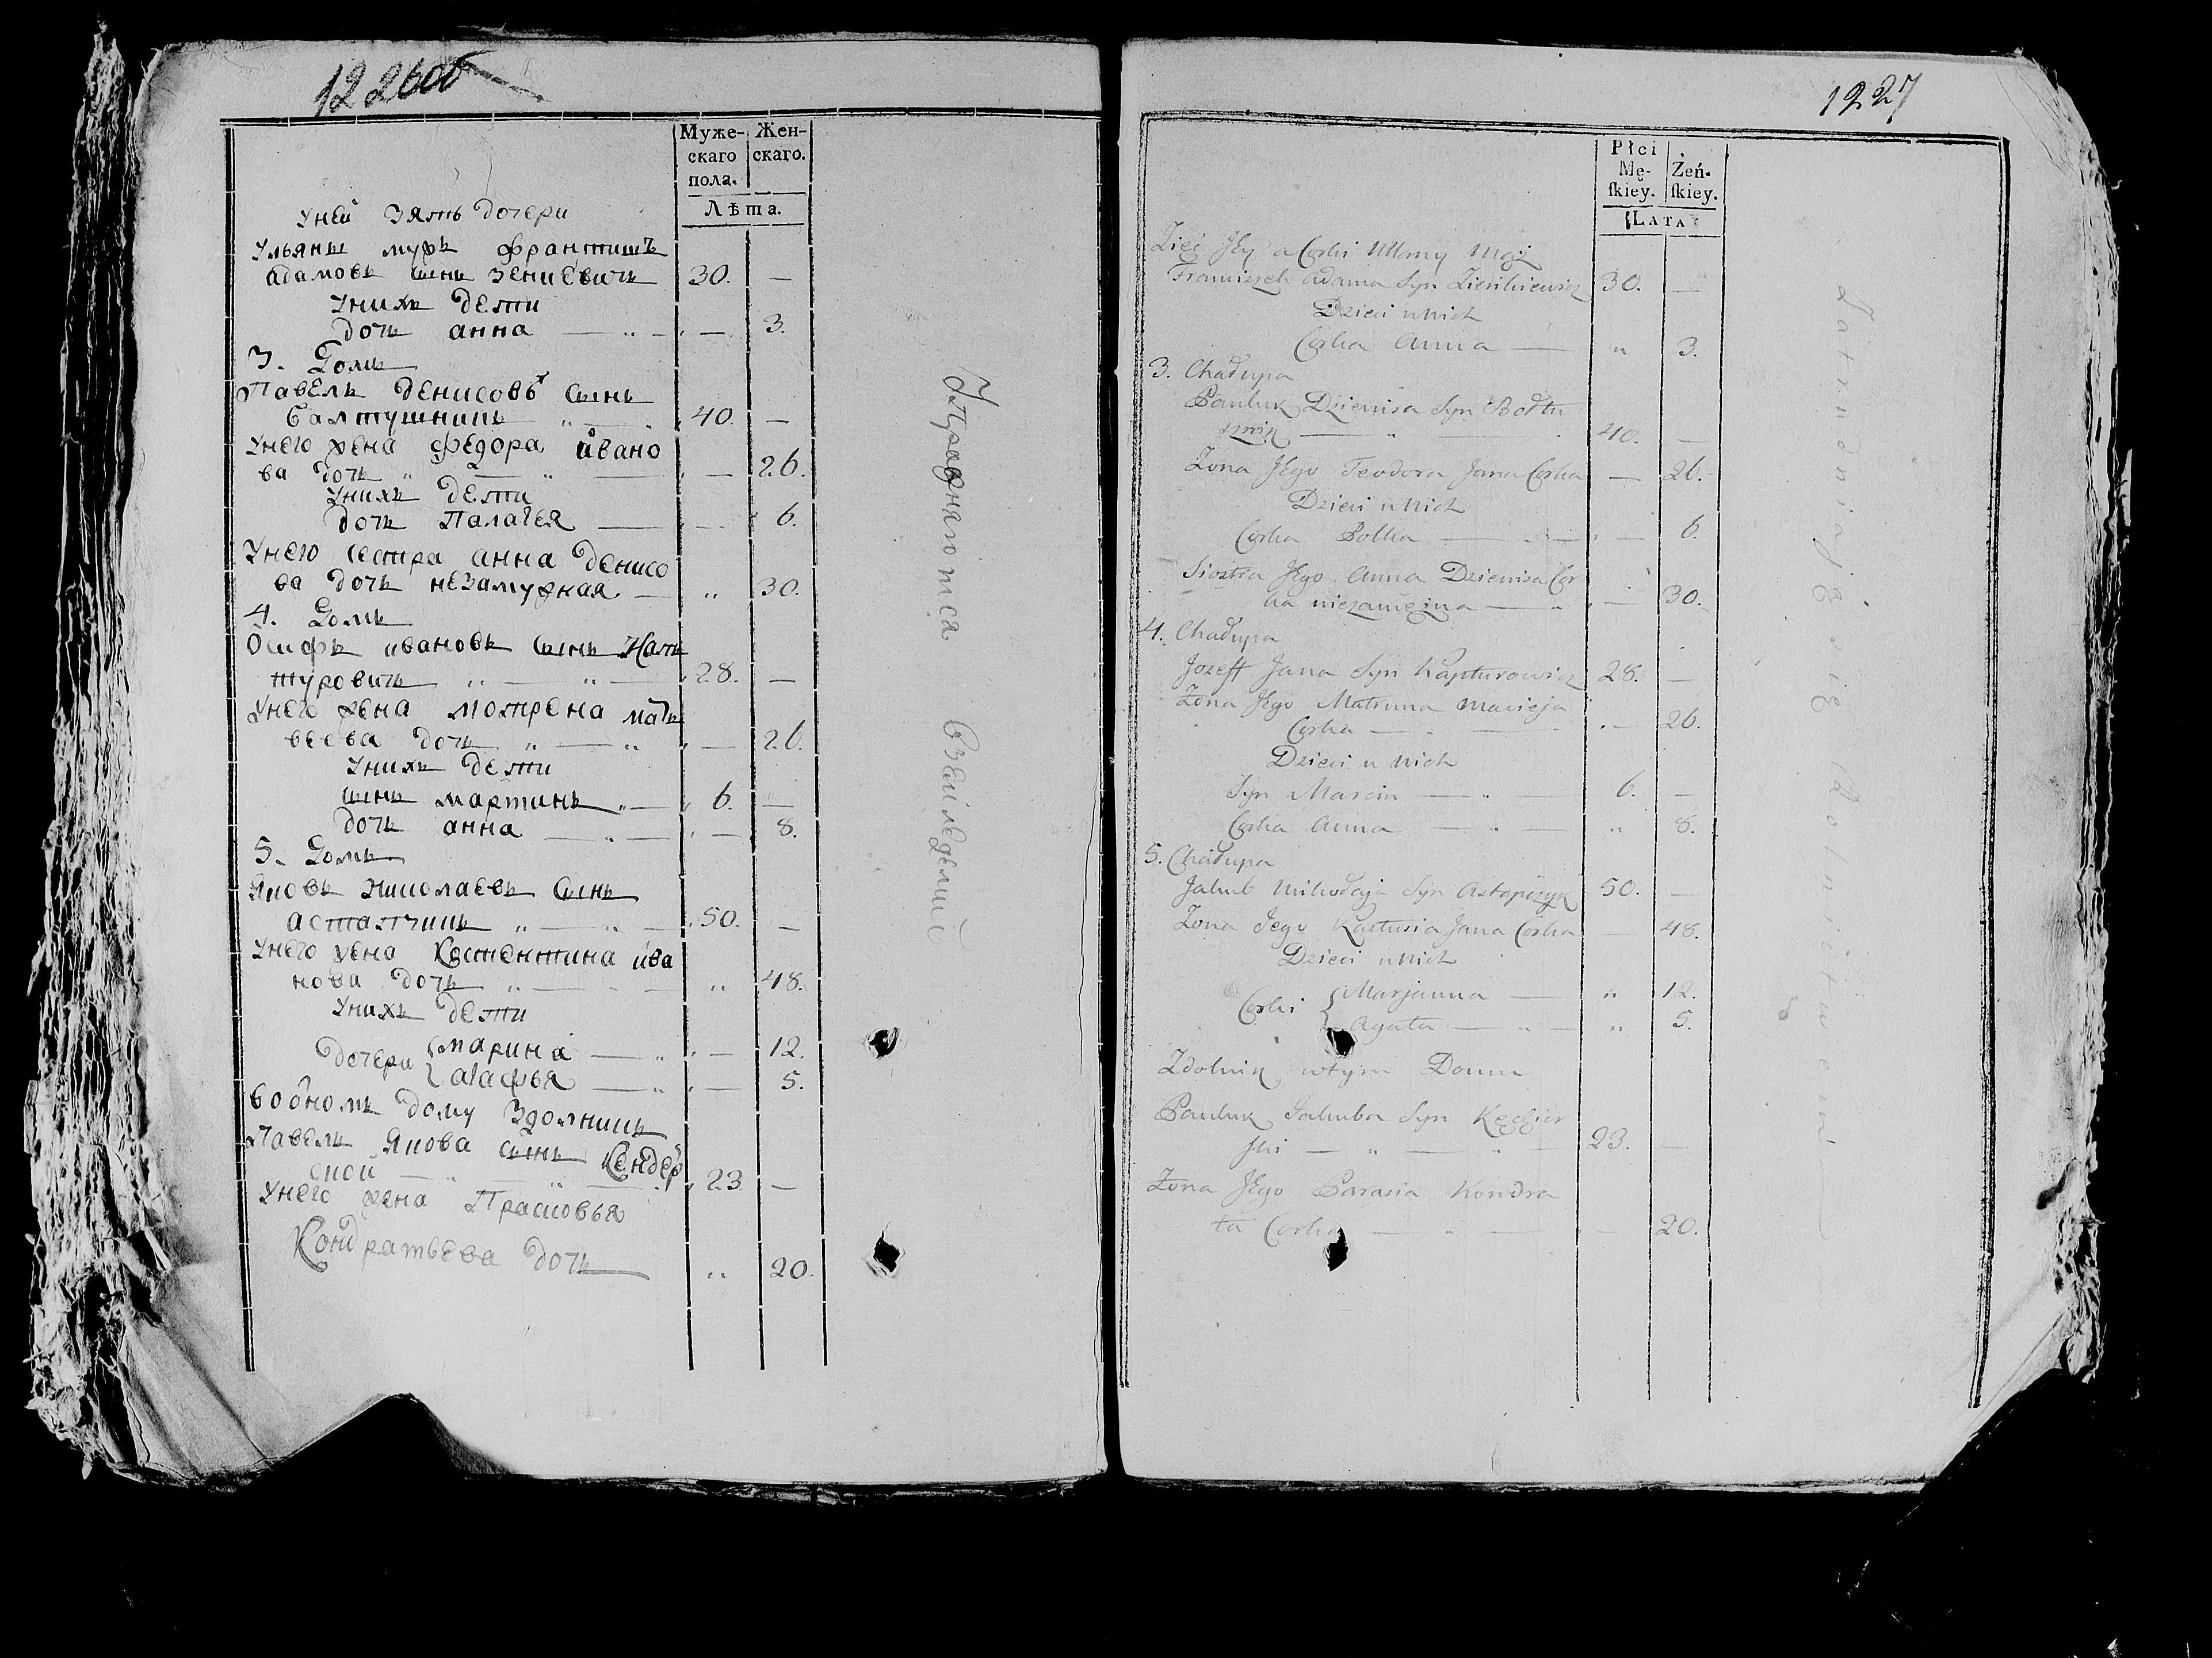 1226об
Муже-
скаго
пола.
Жен-
скаго.
Лѣта.
Уней зять дочери
Ульяны мужъ Францишъ
адамовъ сынъ зениевичъ 30. —
Унихъ дети
дочь анна — „ — — 3.
3. Домъ
Павелъ денисовъ сынъ
балтушникъ „ — 40. —
Унего жена федора ивано
ва дочь „ — „ — — 26.
Унихъ дети
дочь Палагея — — 6.
Унего сестра анна денисо
ва дочь незамужная — „ 30.
4. Домъ
Осифъ ивановъ сынъ Кап
туровичъ „ — „ — 28. —
Унего жена мотрена мать
веева дочь „ — „ — 26.
Унихъ дети
сынъ мартинъ „ — 6. —
дочь анна — „ — — 8.
5. Домъ
Яковъ Николаевъ сынъ
астапчикъ „ — „ — 50. —
Унего жена Костентина ива
нова дочь „ — „ 48.
Унихъ дети
дочери { марина — „ — 12.
агафья — „ — 5.
водномъ дому Здолникъ
Павелъ Якова сынъ Кендер
ской — „ — „ — 23 —
Унего жена Прасковья
Кондратьева дочь „ 20.
Упражняются Вземледелий
1227
Płci
Mę-
ſkiey.
Żeń-
ſkiey.
LATA
Zięć Jey a Corki Ullany mąż
Franciszek Adama Syn Zieńkiewicz 30. —
Dzieci u Nich
Corka Anna — „ 3.
3. Chałupa
Pauluk Dzienisa Syn Bołtu
sznik — „ — 40. —
Zona Jego Teodora Jana Corka — 26.
Dzieci u Nich
Corka Polka — — 6.
Siostra Jego Anna Dzienisa Cor
ka niezamężna — „ — 30.
4. Chałupa
Jozeff Jana Syn Kapturowicz 28. —
Zona Jego Matruna Macieja
Corka — — 26.
Dzieci u Nich
Syn Marcin — „ — 6. —
Corka Anna — „ — „ 8.
5. Chałupa
Jakub Mikołaja Syn Astapczyk 50. —
Zona Jego Kastusia Jana Corka — 48.
Dzieci u Nich
Corki { Marjanna — „ 12.
Agata — „ — „ 5.
Zdolnik wtym Domu
Pauluk Jakuba Syn Kędzier
ſki — „ — „ — 23. —
Zona Jego Parasia Kondra
ta Corka — — 20.
Zatrudniają się Rolnictwem